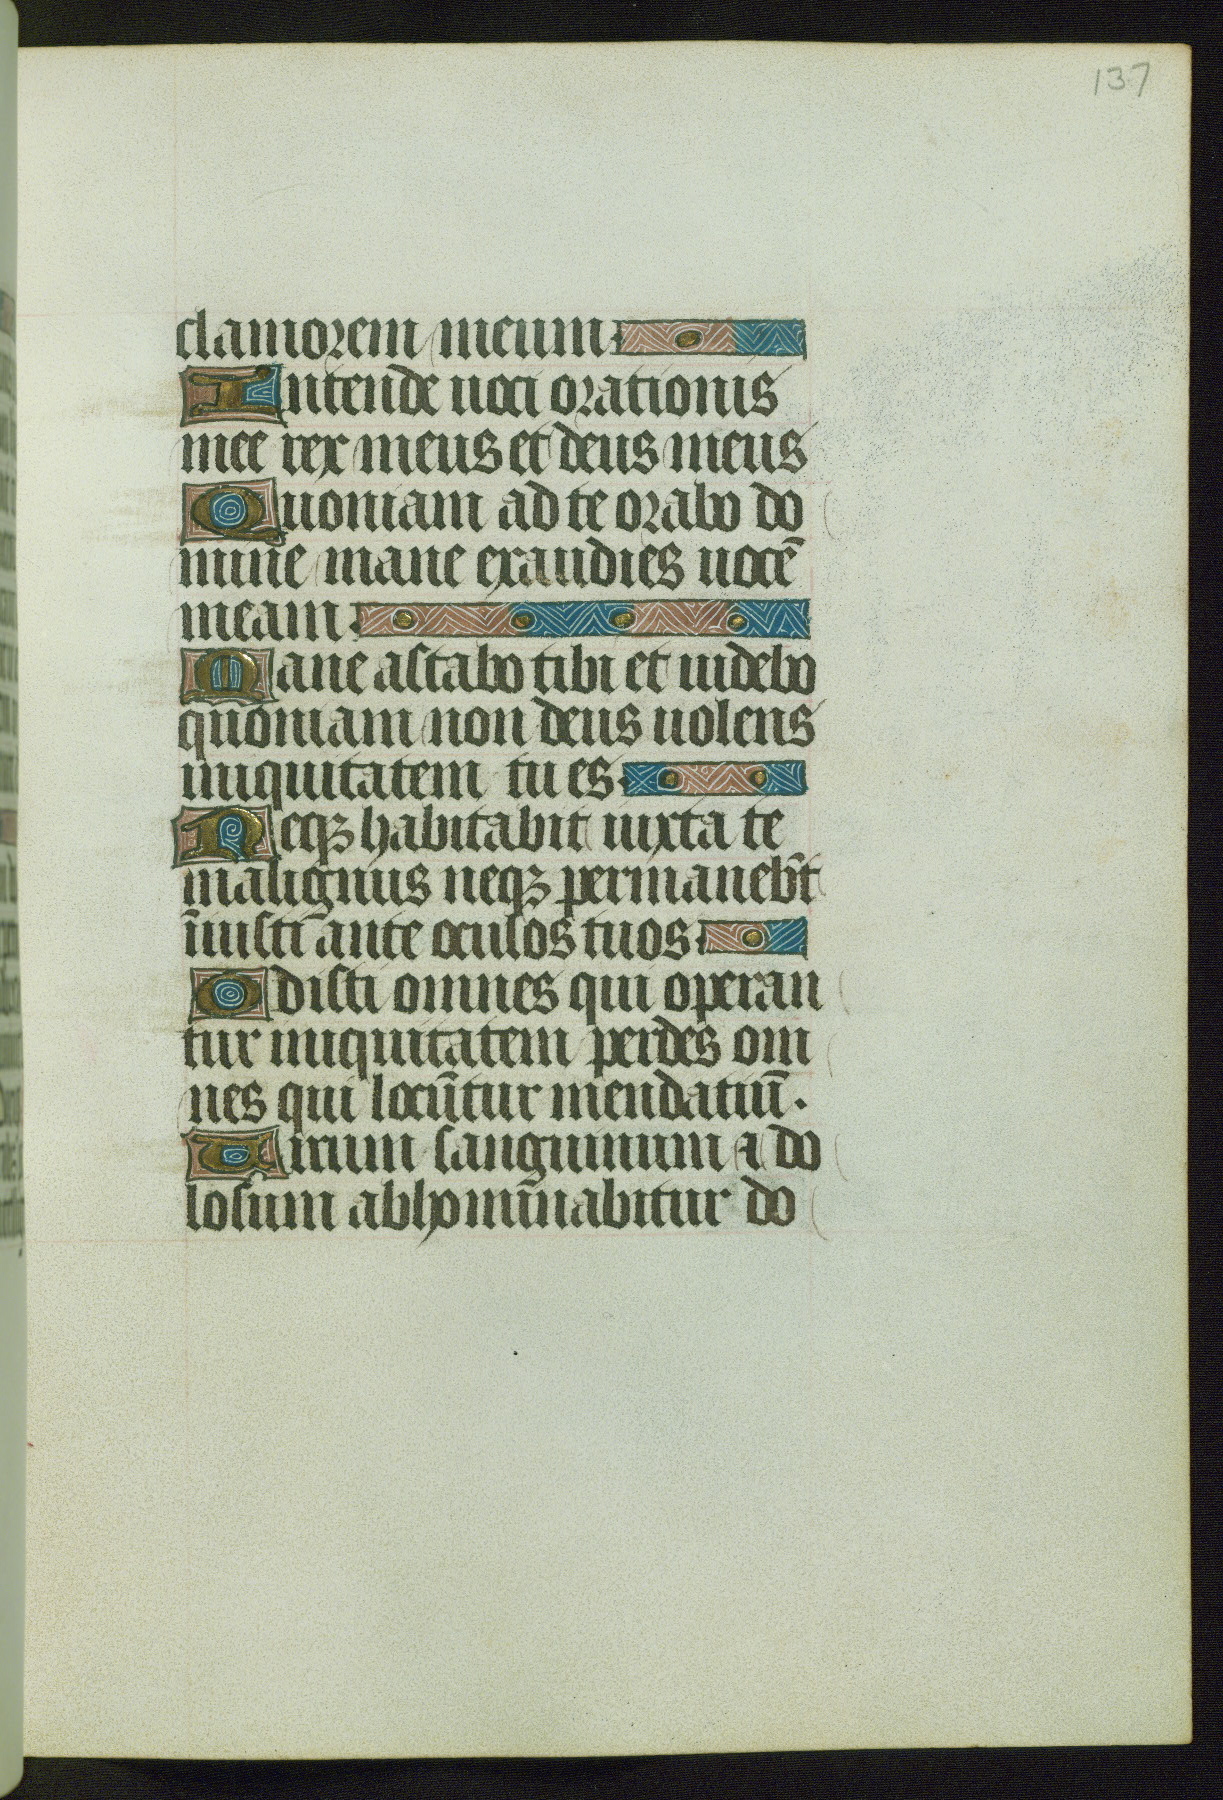 137
clamorem meum·
Intende uoci orationis
mee rex meus et deus meus
Quoniam ad te orabo do
mine mane exaudies uocē
meam·
Mane astabo tibi et uidebo
quoniam non deus uolens
iniquitatem tu es·
Neqꝫ habitabit iuxta te
malignus neqꝫ permaneb̄t
īiusti ante oculos tuos·
Odisti omnes qui operan
tur iniquitatem perdes om
nes qui locūtur mendatiū·
Uirum sanguinum ⁊ do
losum abhomīnabitur do